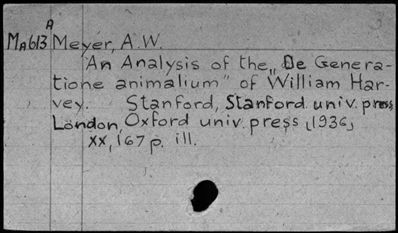 A
MA613 Meyer, A.W.
An Analysis of the „De Genera-
tione animalium" of William Har-
vey. Stanford, Stanford univ. press,
London, Oxford univ. press, [1936]
XX, 167 p. ill.